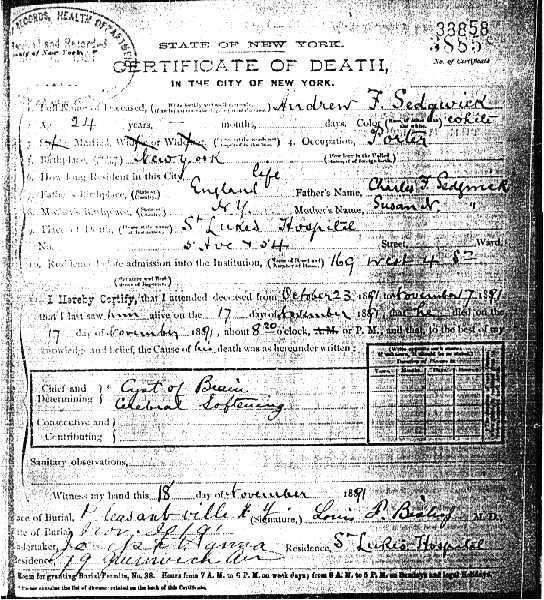 RECORDS, HEALTH DEPARTMENT
33858
3885
No. of Certificate
STATE OF NEW YORK.
CERTIFICATE OF DEATH,
IN THE CITY OF NEW YORK.
Name of Deceased, Andrew F. Sedgwick
24 years, months, days, Color white
Married, Widow or Widower, 4. Occupation, Porter
5. Birthplace, New York
How long Resident in this City, life
Father's Birthplace, England Father's Name, Charles F. Sedgwick
Mother's Birthplace, N.Y. Mother's Name, Susan N. "
Place of Death, St Lukes Hospital
No. 5 Ave & 54 Street, Ward,
Residence before admission into the Institution, 169 West 4 St
I Hereby Certify, that I attended deceased from October 23 1891 to November 17 1891
that I last saw him alive on the 17 day of November 1891, that he died on the
17 day of November 1891, about 8 20 o'clock, A.M. or P. M., and that, to the best of my
knowledge and belief, the Cause of his death was as hereunder written:
Years. Months. Days. Hours.
Chief and Determining Cyst of Brain
Cerebral Softening
Consecutive and Contributing
Sanitary observations,
Witness my hand this 18 day of November 1891
Place of Burial, Pleasantville N.Y. (Signature,) Louis F. Bishop M.D.,
Date of Burial,
Undertaker, Residence, St Lukes Hospital
Residence, 79 Greenwich Av
Room for granting Burial Permits, No. 38. Hours from 7 A. M. to 6 P. M. on week days; from 8 A. M. to 5 P. M. on Sundays and legal Holidays.